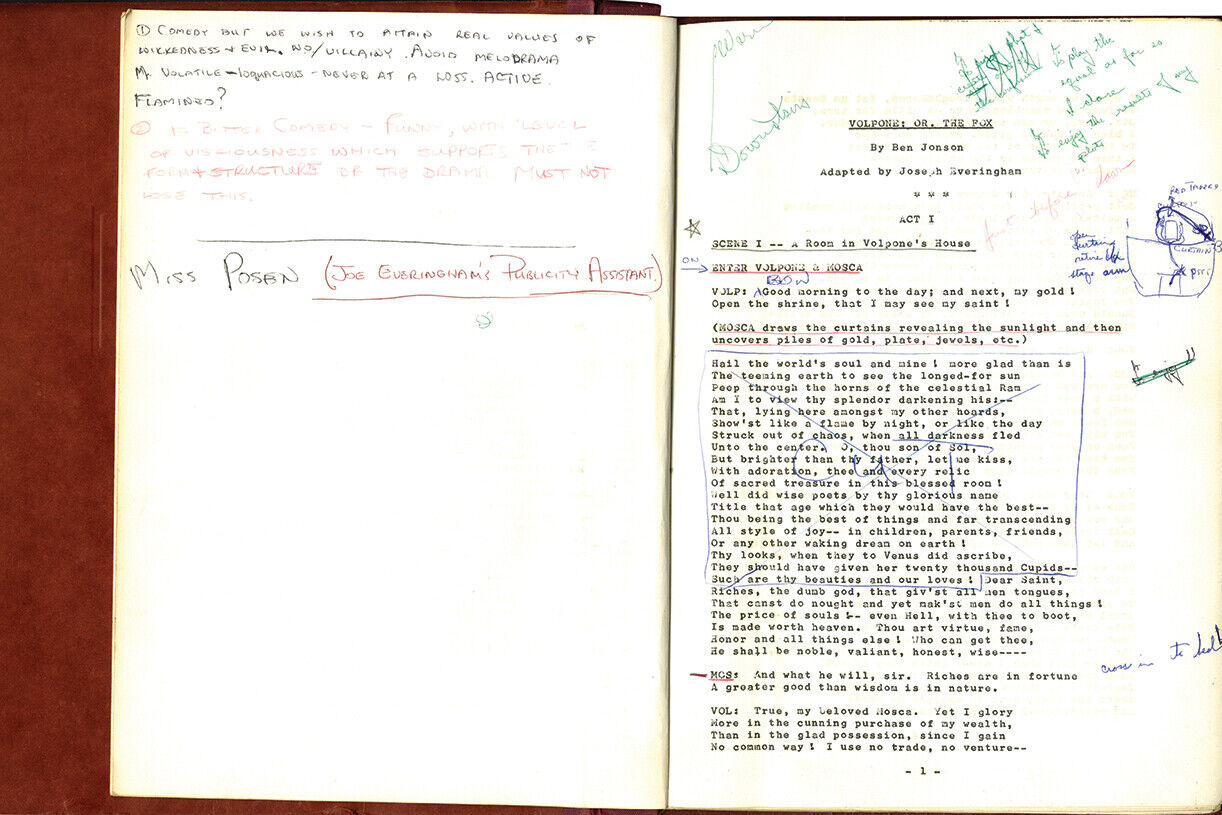 ① COMEDY BUT WE WISH TO ATTAIN REAL VALUES OF
WICKEDNESS + EVIL. NO/VILLAINY. AVOID MELODRAMA
M. VOLATILE - loquacious - NEVER AT A LOSS. ACTIVE.
FLAMINEO?
② IS BITTER COMEDY - FUNNY, WITH LEVEL
OF VISCIOUSNESS WHICH SUPPORTS THE
FORM + STRUCTURE OF THE DRAMA MUST NOT
LOSE THIS.
MISS POSEN (JOE EVERINGHAM'S PUBLICITY ASSISTANT.)
Warn
Downstairs
to play the
equal as far as
I dare
to enjoy the results of my
plots
VOLPONE: OR, THE FOX
By Ben Jonson
Adapted by Joseph Everingham
* * *
ACT I
just before dawn
SCENE I -- A Room in Volpone's House
ON
ENTER VOLPONE & MOSCA
BED TABLE
open
curtains
return
stage arm
CURTAIN
VOLP: Good morning to the day; and next, my gold!
Open the shrine, that I may see my saint!
(MOSCA draws the curtains revealing the sunlight and then
uncovers piles of gold, plate, jewels, etc.)
Hail the world's soul and mine! more glad than is
The teeming earth to see the longed-for sun
Peep through the horns of the celestial Ram
Am I to view thy splendor darkening his:--
That, lying here amongst my other hoards,
Show'st like a flame by night, or like the day
Struck out of chaos, when all darkness fled
Unto the center. O, thou son of Sol,
But brighter than thy father, let me kiss,
With adoration, thee and every relic
Of sacred treasure in this blessed room!
Well did wise poets by thy glorious name
Title that age which they would have the best--
Thou being the best of things and far transcending
All style of joy-- in children, parents, friends,
Or any other waking dream on earth!
Thy looks, when they to Venus did ascribe,
They should have given her twenty thousand Cupids--
Such are thy beauties and our loves! Dear Saint,
Riches, the dumb god, that giv'st all men tongues,
That canst do nought and yet mak'st men do all things!
The price of souls!-- even Hell, with thee to boot,
Is made worth heaven. Thou art virtue, fame,
Honor and all things else! Who can get thee,
He shall be noble, valiant, honest, wise----
Cut
cross in to bed
MOS: And what he will, sir. Riches are in fortune
A greater good than wisdom is in nature.
VOL: True, my beloved Mosca. Yet I glory
More in the cunning purchase of my wealth,
Than in the glad possession, since I gain
No common way! I use no trade, no venture--
- 1 -